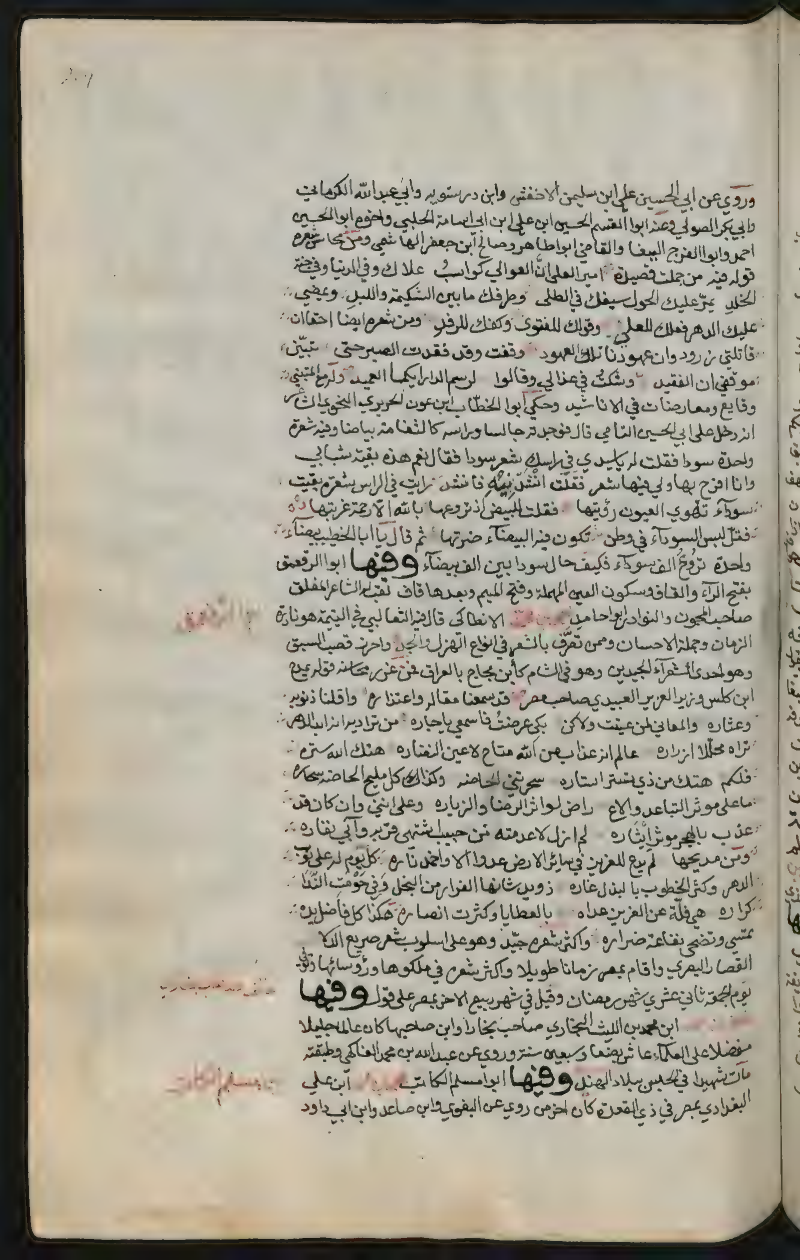 وروي عن ابي الحسين علي ابن سليمن الاخفش وابن درستويه وابي عبد الله الكرماني
وابي بكر الصولي وعنه ابوا القسم الحسين ابن علي ابن ابي اسامة الحلبي واخوه ابوا الحسين
احمد وابوا الفرج الببغا والقاضي ابوا طاهر وصالح ابن جعفر الهاشمي ومن محاسن شعره
قوله فيه من جملت قصيدة امير العلي ان العوالي كواسب علاك وفي الدنيا وفي جنة
الخلد يمر عليك الحول سيفك في الطلي وطرفك ما بين الشكيمة واللبد ويمضي
عليك الدهر فعلك للعلي وقولك للتقوي وكفك للرفد ومن شعره ايضا احقا ان
قاتلتي زرود وان عهودنا تلك العهود وقفت وقد فقدت الصبر حتى تبين
موقفي ان الفقيد وشكت في عذالي وقالوا لرسم الدار ايكما العميد وله مع المتنبي
وقايع ومعارضات في الاناشيد وحكي ابوا الخطاب ابن عون الحريري النحوي الشاعر
انه دخل على ابي الحسين النامي قال فوجدته جالسا وراسه كالثغامة بياضا وفيه شعرة
واحدة سودا فقلت له يا سيدي في راسك شعره سودا فقال نعم هذه بقية شبابي
وانا افرح بها ولي فيها شعر فقلت انشدنيه فانشد رايت في الراس شعرة بقيت
سودآء تهوي العيون رؤيتها فقلت للبيض اذ تروعها بالله الا رحمة غربتها
فقل لبس السودآء في وطن تكون فيه البيضآء ضرتها ثم قال يا ابا الخطاب بيضآء
واحدة تروع الف سودآء فكيف حال سودا بين الف بيضآء وفيها ابوا الرقعمق
بفتح الرآء والقاف وسكون العين المهملة وفتح الميم وبعدها قاف لقبه الشاعر المفلق
صاحب المجون والنوادر ابوا حامد الانطاكي قال فيه الثعالبي في اليتيمة هو نادرة
الزمان وجملة الاحسان وممن تصرف بالشعر في انواع الهزل والجد واحرز قصب السبق
وهو احدى الشعرآء المجيدين وهو في الشام كابن حجاج بالعراق فمن غرر محاسنه قوله يمدح
ابن كلس وزير العزيز العبيدي صاحب مصر قد سمعنا مقاله واعتذاره واقلنا ذنوبه
وعثاره والمعاني لمن عنيت ولاكن بكي عرضت فاسمعي يا جاره من تراديه انه ابد الدهر
تراه محللا ازراره عالم انه عذاب من الله متاح لاعين النضاره هتك الله ستره
فلكم هتك من ذي تستر استاره سحرتني الحاضه وكذاك كل مليح الحاضه سحاره
ما على موثر التباعد والاع راض لو اثر الرضا والزياره وعلى انني وان كان قد
عذب بالهجر موثر ايثاره لم ازل لاعدمته من حبيب اشتهى قربه وآبي نفاره
ومن مديحها لم يدع للعزيز في ساير الارض عدوا الا واخمد ناره كل يوم له على نوب
الدهر وكثر الخطوب بالبذل غاره ذو يد شانها الفرار من البخل وفي حومت الندا
كراره هي فلت عن العزيز عداه بالعطايا وكثرت انصاره هكذا كل فاضل يده
تمسي وتضحي نفاعة ضراره واكثر شعره جيد وهو على اسلوب شعر صريع الدلا
القصار البصري واقام بمصر زمانا طويلا واكثر شعره في ملكوها ورؤسائها توفي
يوم الجمعة ثاني عشري شهر رمضان وقيل في شهر ربيع الاخر بمصر على قول وفيها
ابن محمد بن الليث البخاري صاحب بخارا وابن صاحبها كان عالما جليلا
مفضلا على العلمآء عاش بضعا وسبعين سنة وروي عن عبد الله بن محمد الفاكهي وطبقته
مات شهيدا في الحبس ببلاد الهند وفيها ابوا مسلم الكاتب ابن علي
البغدادي بمصر في ذي القعدة كان اخر من روي عن البغوي وابن صاعد وابن ابي داود
ابو الرقعمق
ابو مسلم الكاتب